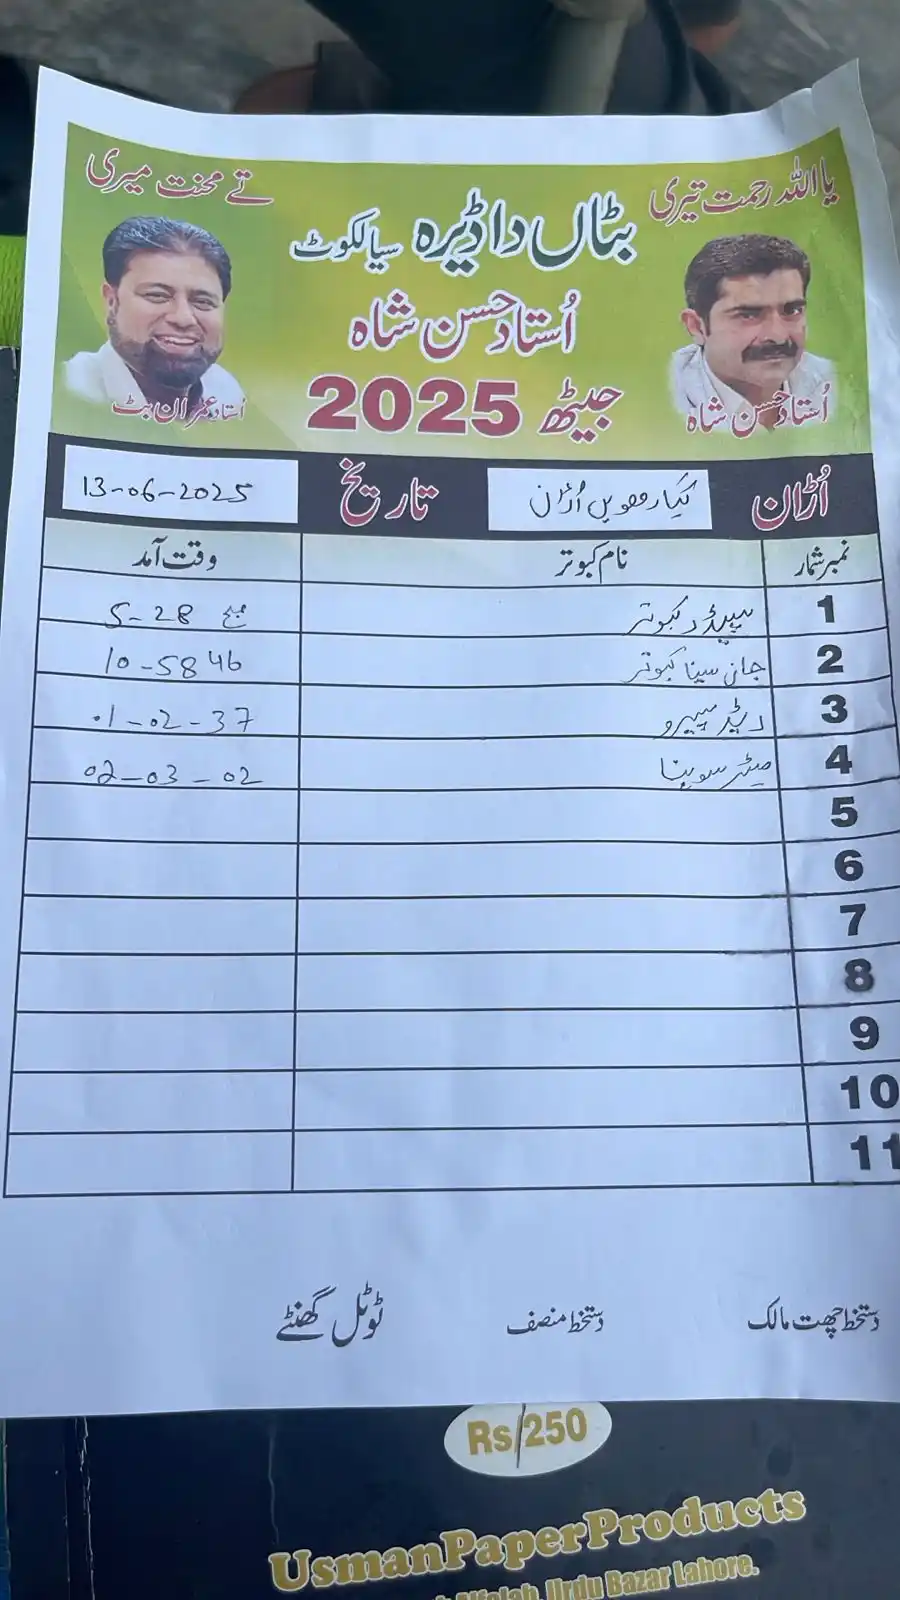 یا اللہ رحمت تیری
تے محنت میری
بٹاں دا ڈیرہ سیالکوٹ
اُستاد حسن شاہ
جیٹھ 2025
اُستاد حسن شاہ
اُستاد عمران بٹ
اُڑان گیارھویں اُڑان تاریخ 13-06-2025
نمبر شمار نام کبوتر وقت آمد
1 کبوتر صبح 5-28
2 جانی سینا کبوتر 10-58 46
3 ریڈ 01-02-37
4 02-03-02
5
6
7
8
9
10
11
دستخط چھت مالک دستخط منصف ٹوٹل گھنٹے
Rs/250
UsmanPaperProducts
Urdu Bazar Lahore.